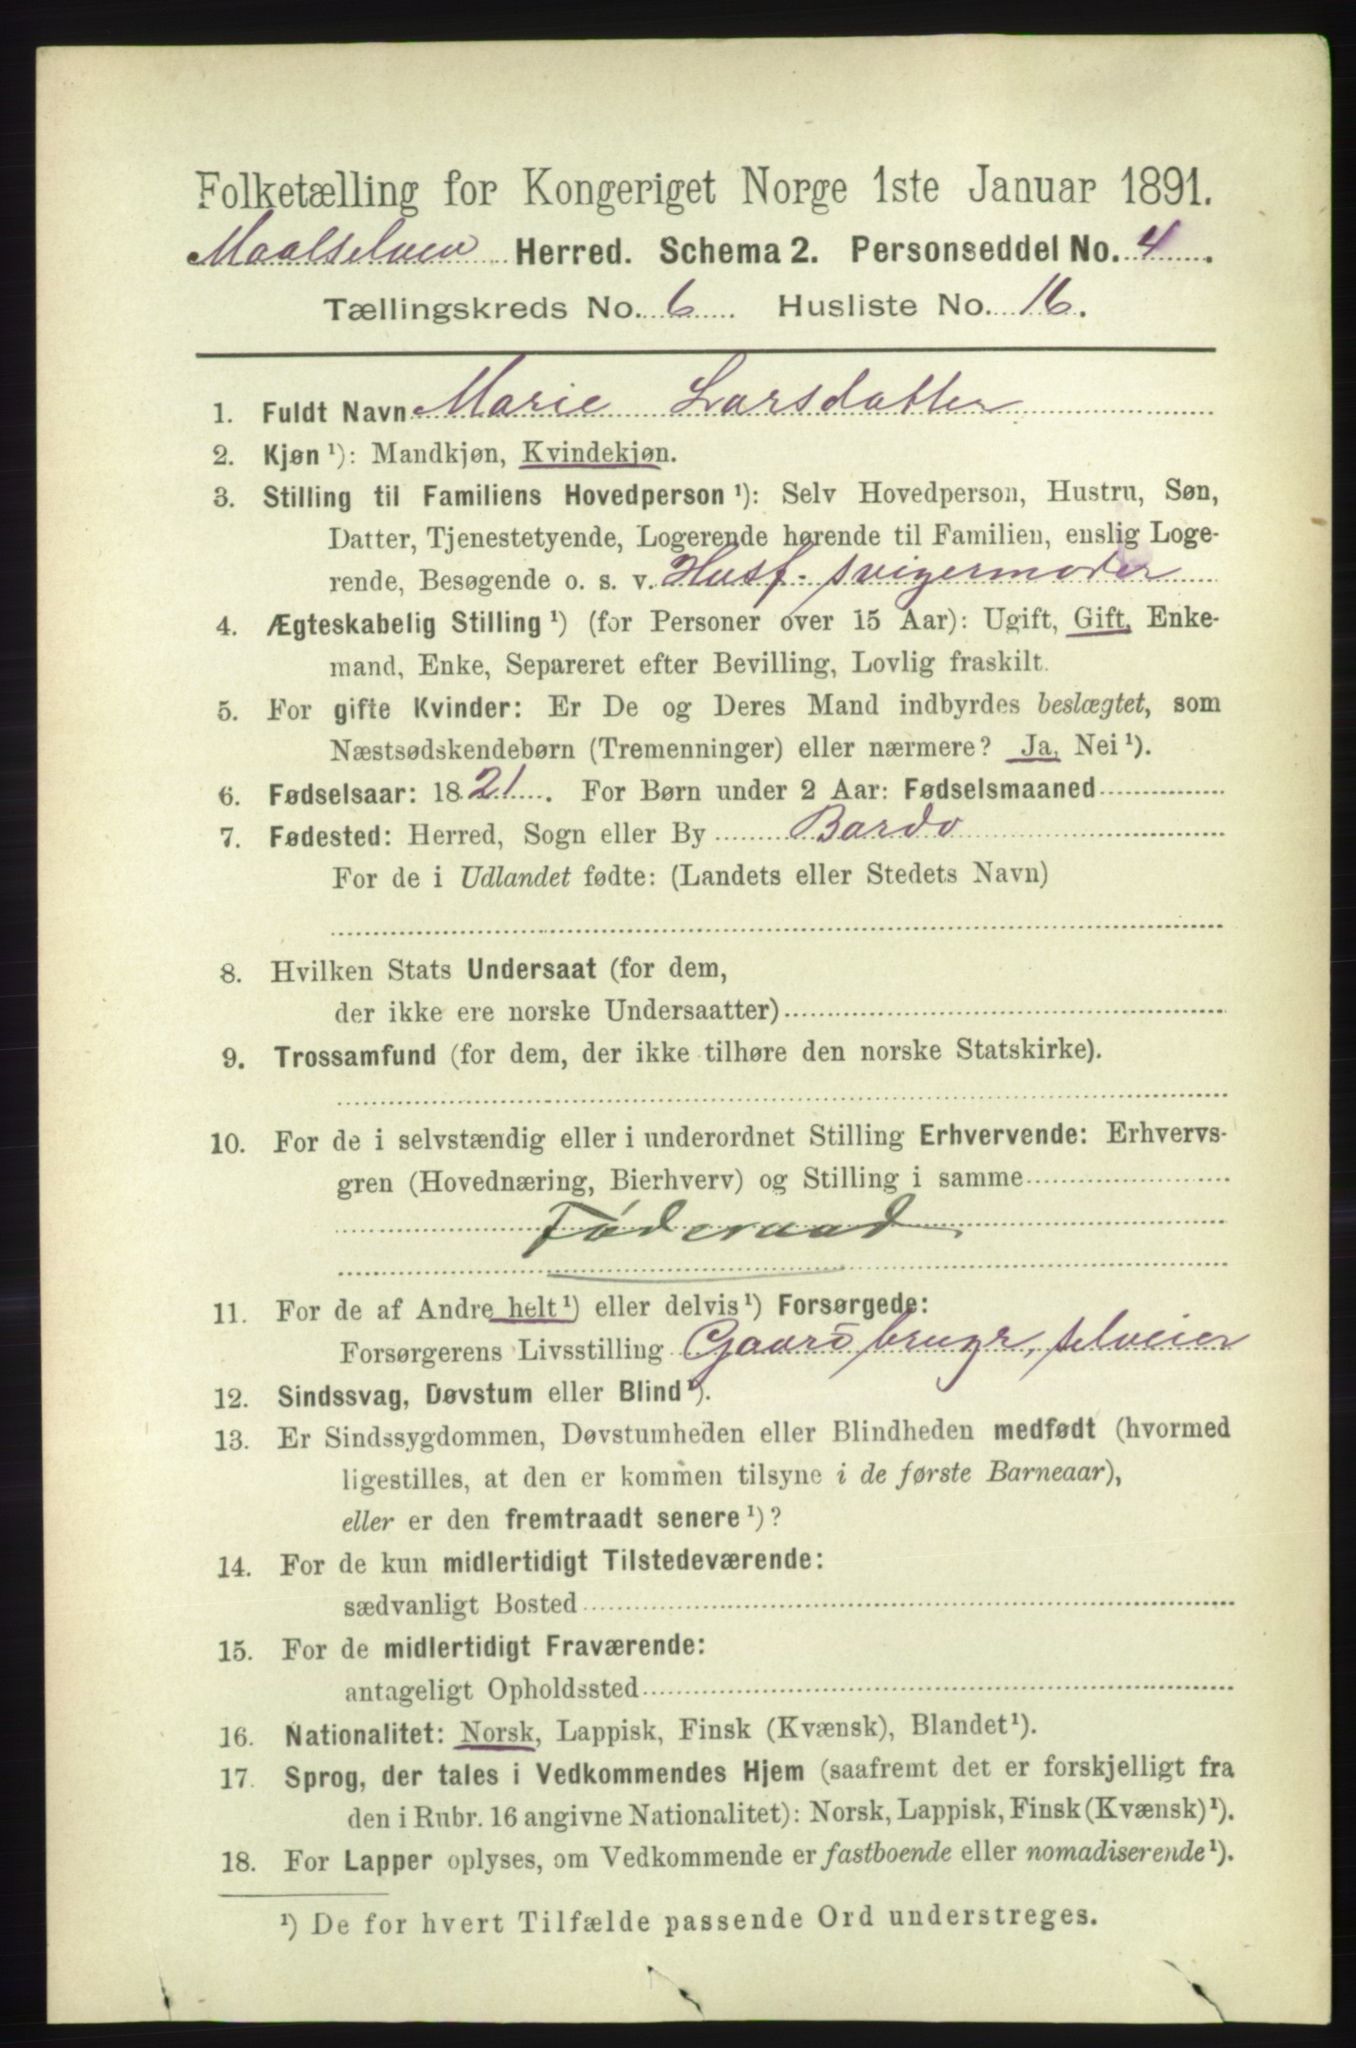 Folketælling for Kongeriget Norge 1ste Januar 1891.
Maalselven Herred. Schema 2. Personseddel No. 4.
Tællingskreds No. 6. Husliste No. 16.
1. Fuldt Navn Marie Larsdatter
2. Kjøn ¹): Mandkjøn, Kvindekjøn.
3. Stilling til Familiens Hovedperson ¹): Selv Hovedperson, Hustru, Søn,
Datter, Tjenestetyende, Logerende hørende til Familien, enslig Loge-
rende, Besøgende o. s. v. Husf. svigermoder
4. Ægteskabelig Stilling ¹) (for Personer over 15 Aar): Ugift, Gift, Enke-
mand, Enke, Separeret efter Bevilling, Lovlig fraskilt.
5. For gifte Kvinder: Er De og Deres Mand indbyrdes beslægtet, som
Næstsødskendebørn (Tremenninger) eller nærmere? Ja, Nei ¹).
6. Fødselsaar: 1821. For Børn under 2 Aar: Fødselsmaaned
7. Fødested: Herred, Sogn eller By Bardo
For de i Udlandet fødte: (Landets eller Stedets Navn)
8. Hvilken Stats Undersaat (for dem,
der ikke ere norske Undersaatter)
9. Trossamfund (for dem, der ikke tilhøre den norske Statskirke).
10. For de i selvstændig eller i underordnet Stilling Erhvervende: Erhvervs-
gren (Hovednæring, Bierhverv) og Stilling i samme
Føderaad
11. For de af Andre helt ¹) eller delvis ¹) Forsørgede:
Forsørgerens Livsstilling Gaardbruger, selveier
12. Sindssvag, Døvstum eller Blind ¹).
13. Er Sindssygdommen, Døvstumheden eller Blindheden medfødt (hvormed
ligestilles, at den er kommen tilsyne i de første Barneaar),
eller er den fremtraadt senere ¹)?
14. For de kun midlertidigt Tilstedeværende:
sædvanligt Bosted
15. For de midlertidigt Fraværende:
antageligt Opholdssted
16. Nationalitet: Norsk, Lappisk, Finsk (Kvænsk), Blandet ¹).
17. Sprog, der tales i Vedkommendes Hjem (saafremt det er forskjelligt fra
den i Rubr. 16 angivne Nationalitet): Norsk, Lappisk, Finsk (Kvænsk) ¹).
18. For Lapper oplyses, om Vedkommende er fastboende eller nomadiserende ¹).
¹) De for hvert Tilfælde passende Ord understreges.